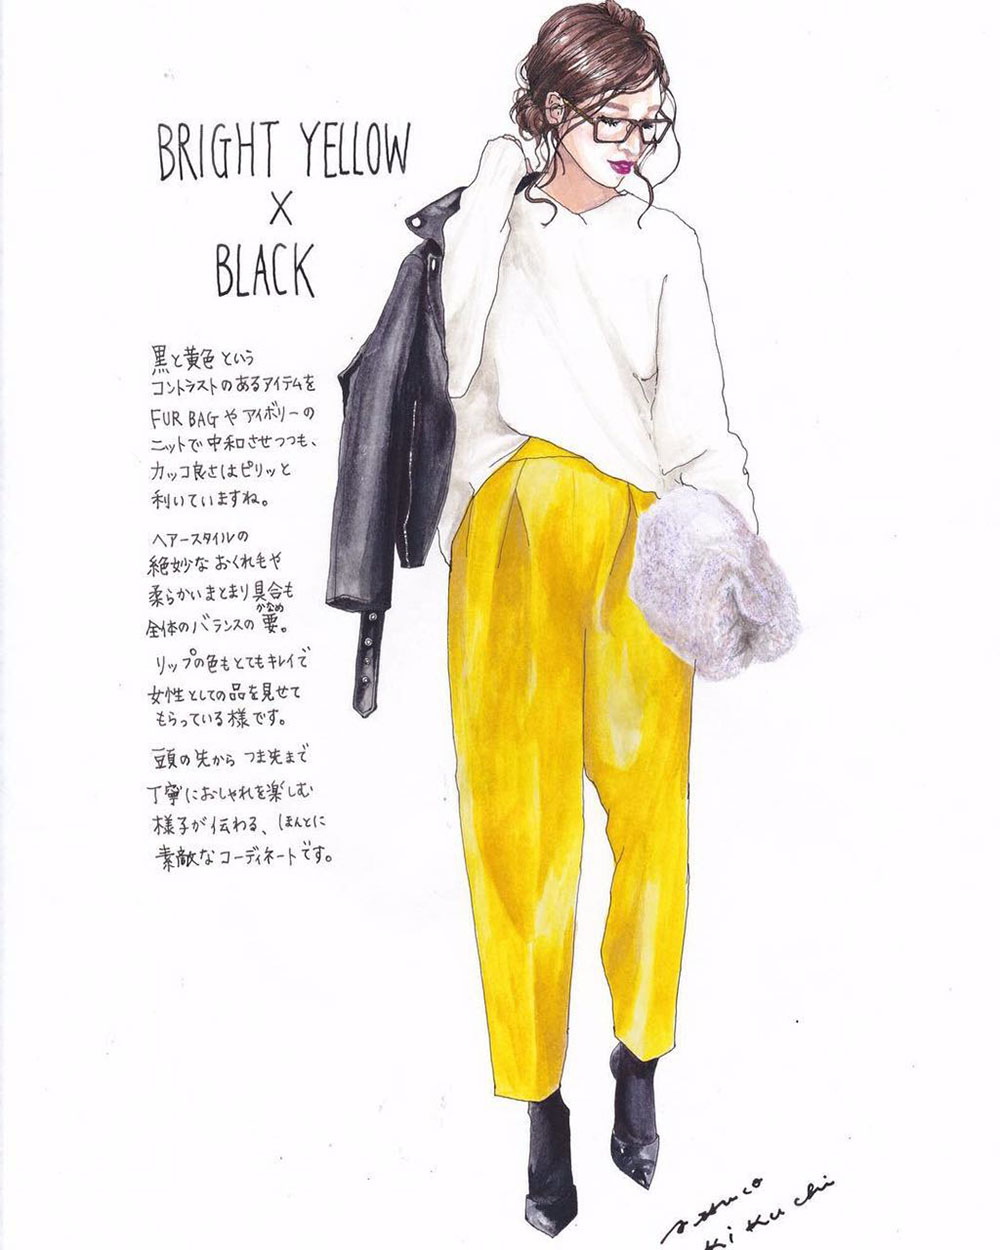 BRIGHT YELLOW
X
BLACK
黒と黄色という
コントラストのあるアイテムを
FUR BAGやアイボリーの
ニットで中和させつつも、
カッコ良さはピリッと
利いていますね。
ヘアースタイルの
絶妙なおくれ毛や
柔らかいまとまり具合も
かなめ
全体のバランスの要。
リップの色もとてもキレイで
女性としての品を見せて
もらっている様です。
頭の先からつま先まで
丁寧におしゃれを楽しむ
様子が伝わる、ほんとに
素敵なコーディネートです。
Kikuchi